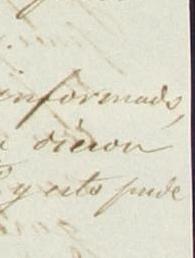 informado,
dieron
y esto pude